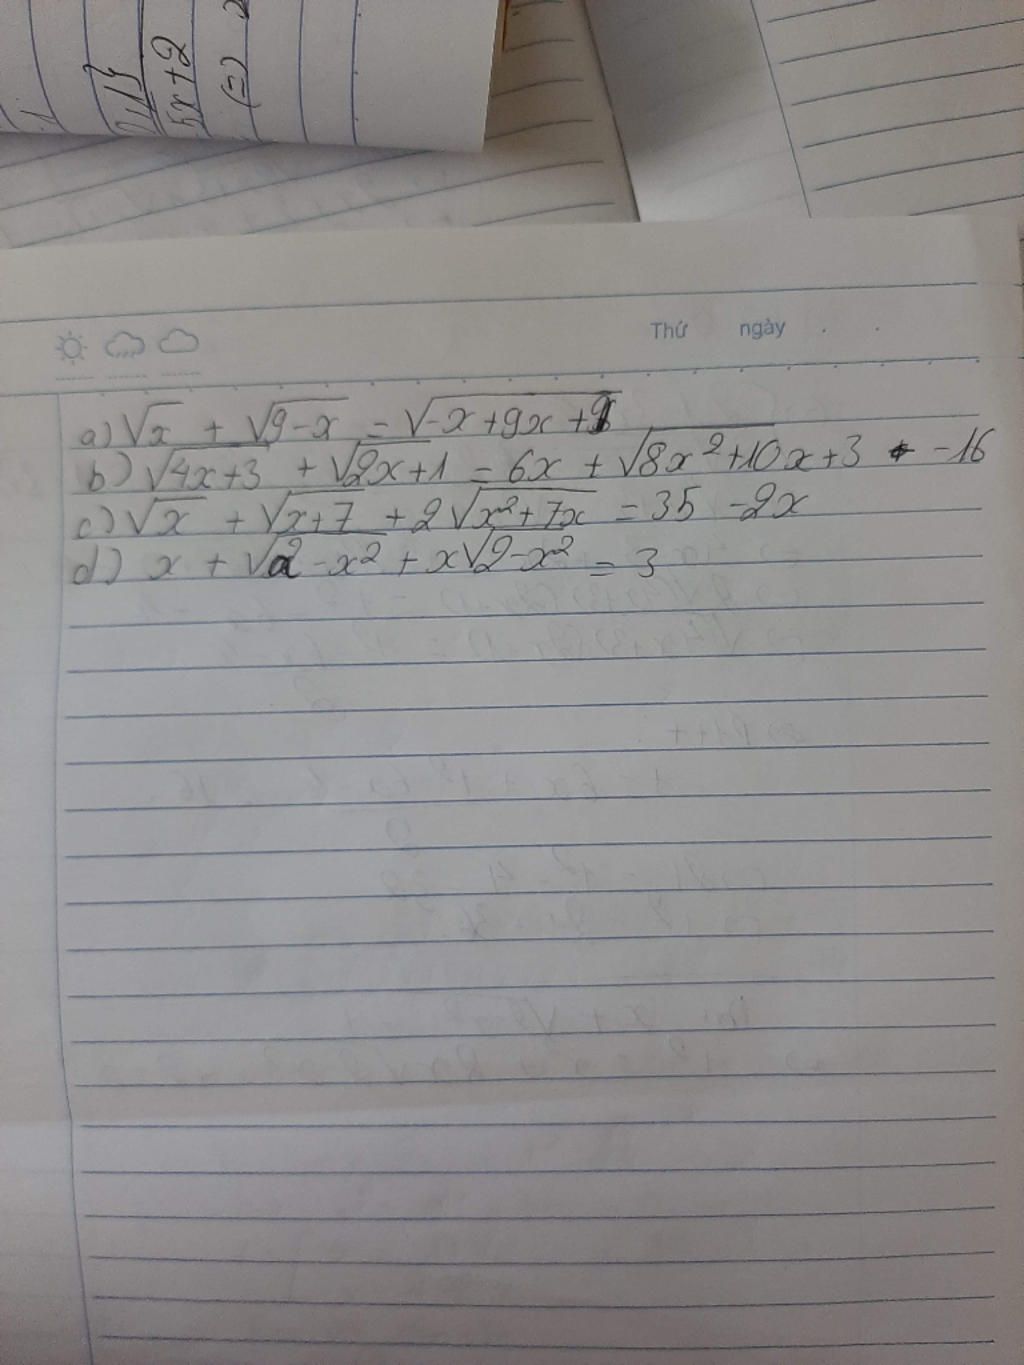 5x+2
(=)
Thứ ngày
a) √x + √9-x = √-x+9x+9
b) √4x+3 + √2x+1 = 6x + √8x²+10x+3 -16
c) √x + √x+7 + 2√x²+7x = 35 -2x
d) x + √2-x² + x√2-x² = 3